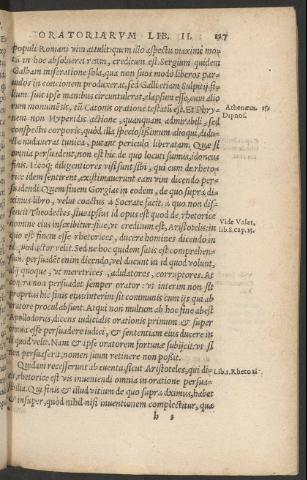 ORATORIARVM LIB. II. 117
Populi Romani vim attulit: quem illo aspectu maximè motum in hoc absolueret reum, creditum est. Sergium quidem
Galbam miseratione sola, qua non suos modò liberos paruulos in concionem produxerat, sed Galli etiam Sulpitij filium
suis ipse manibus circumtulerat, elapsum esse, cum aliorum monumentis, tũ Catonis oratione testatũ est. Et Phrynem
non Hyperidis actione, quanquam admirabili, sed
conspectu corporis, quod illa speciosissimum alioqui, diducta
nudauerat tunica, putant periculo liberatam. Quæ si
omnia persuadent, non est hic de quo locuti sumus, idoneus
finis. Ideoq; diligentiores visi sunt sibi, qui cum de rhetorice
idem sentirent, existimauerunt eam vim dicendo persuadendi.
Quem finem Gorgias in eodem, de quo suprà diximus
libro, velut coactus à Socrate facit. à quo non dissentit
Theodectes, siue ipsius id opus est quod de rhetorice
nomine eius inscribitur: siue, vt creditum est, Aristotelis: in
quo est finem esse rhetorices, ducere homines dicendo in
id quod actor velit. Sed ne hoc quidem satis est comprehensum,
persuadẽt enim dicendo, vel ducunt in id quod volunt,
alij quoque, vt meretrices, adulatores, corruptores. At
contrà non persuadet semper orator: vt interim non sit
proprius hic finis eius: interim sit communis cum ijs qui ab
oratore procul absunt. Atqui non multum ab hoc fine abest
Apollodorus, dicens iudicialis orationis primum & super
omnia esse persuadere iudici, & sententiam eius ducere in
id quod velit. Nam & ipse oratorem fortunæ subijcit: vt si
non persuaserit, nomen suum retinere non possit.
Quidam recesserunt ab euentu, sicut Aristoteles, qui dicit,
rhetorice est vis inueniendi omnia in oratione persuasibilia.
Qui finis & illud vitium de quo suprà diximus, habet
& insuper, quòd nihil nisi inuentionem complectitur, quæ
h 3
Athenæus
Dipnos.
Vide Valer.
Lib.8.cap.9.
Lib.1.Rheto.